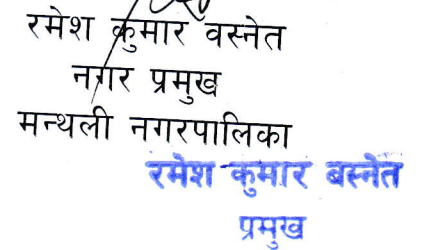 रमेश कुमार वस्नेत
नगर प्रमुख
मन्थली नगरपालिका
रमेश कुमार बस्नेत
प्रमुख